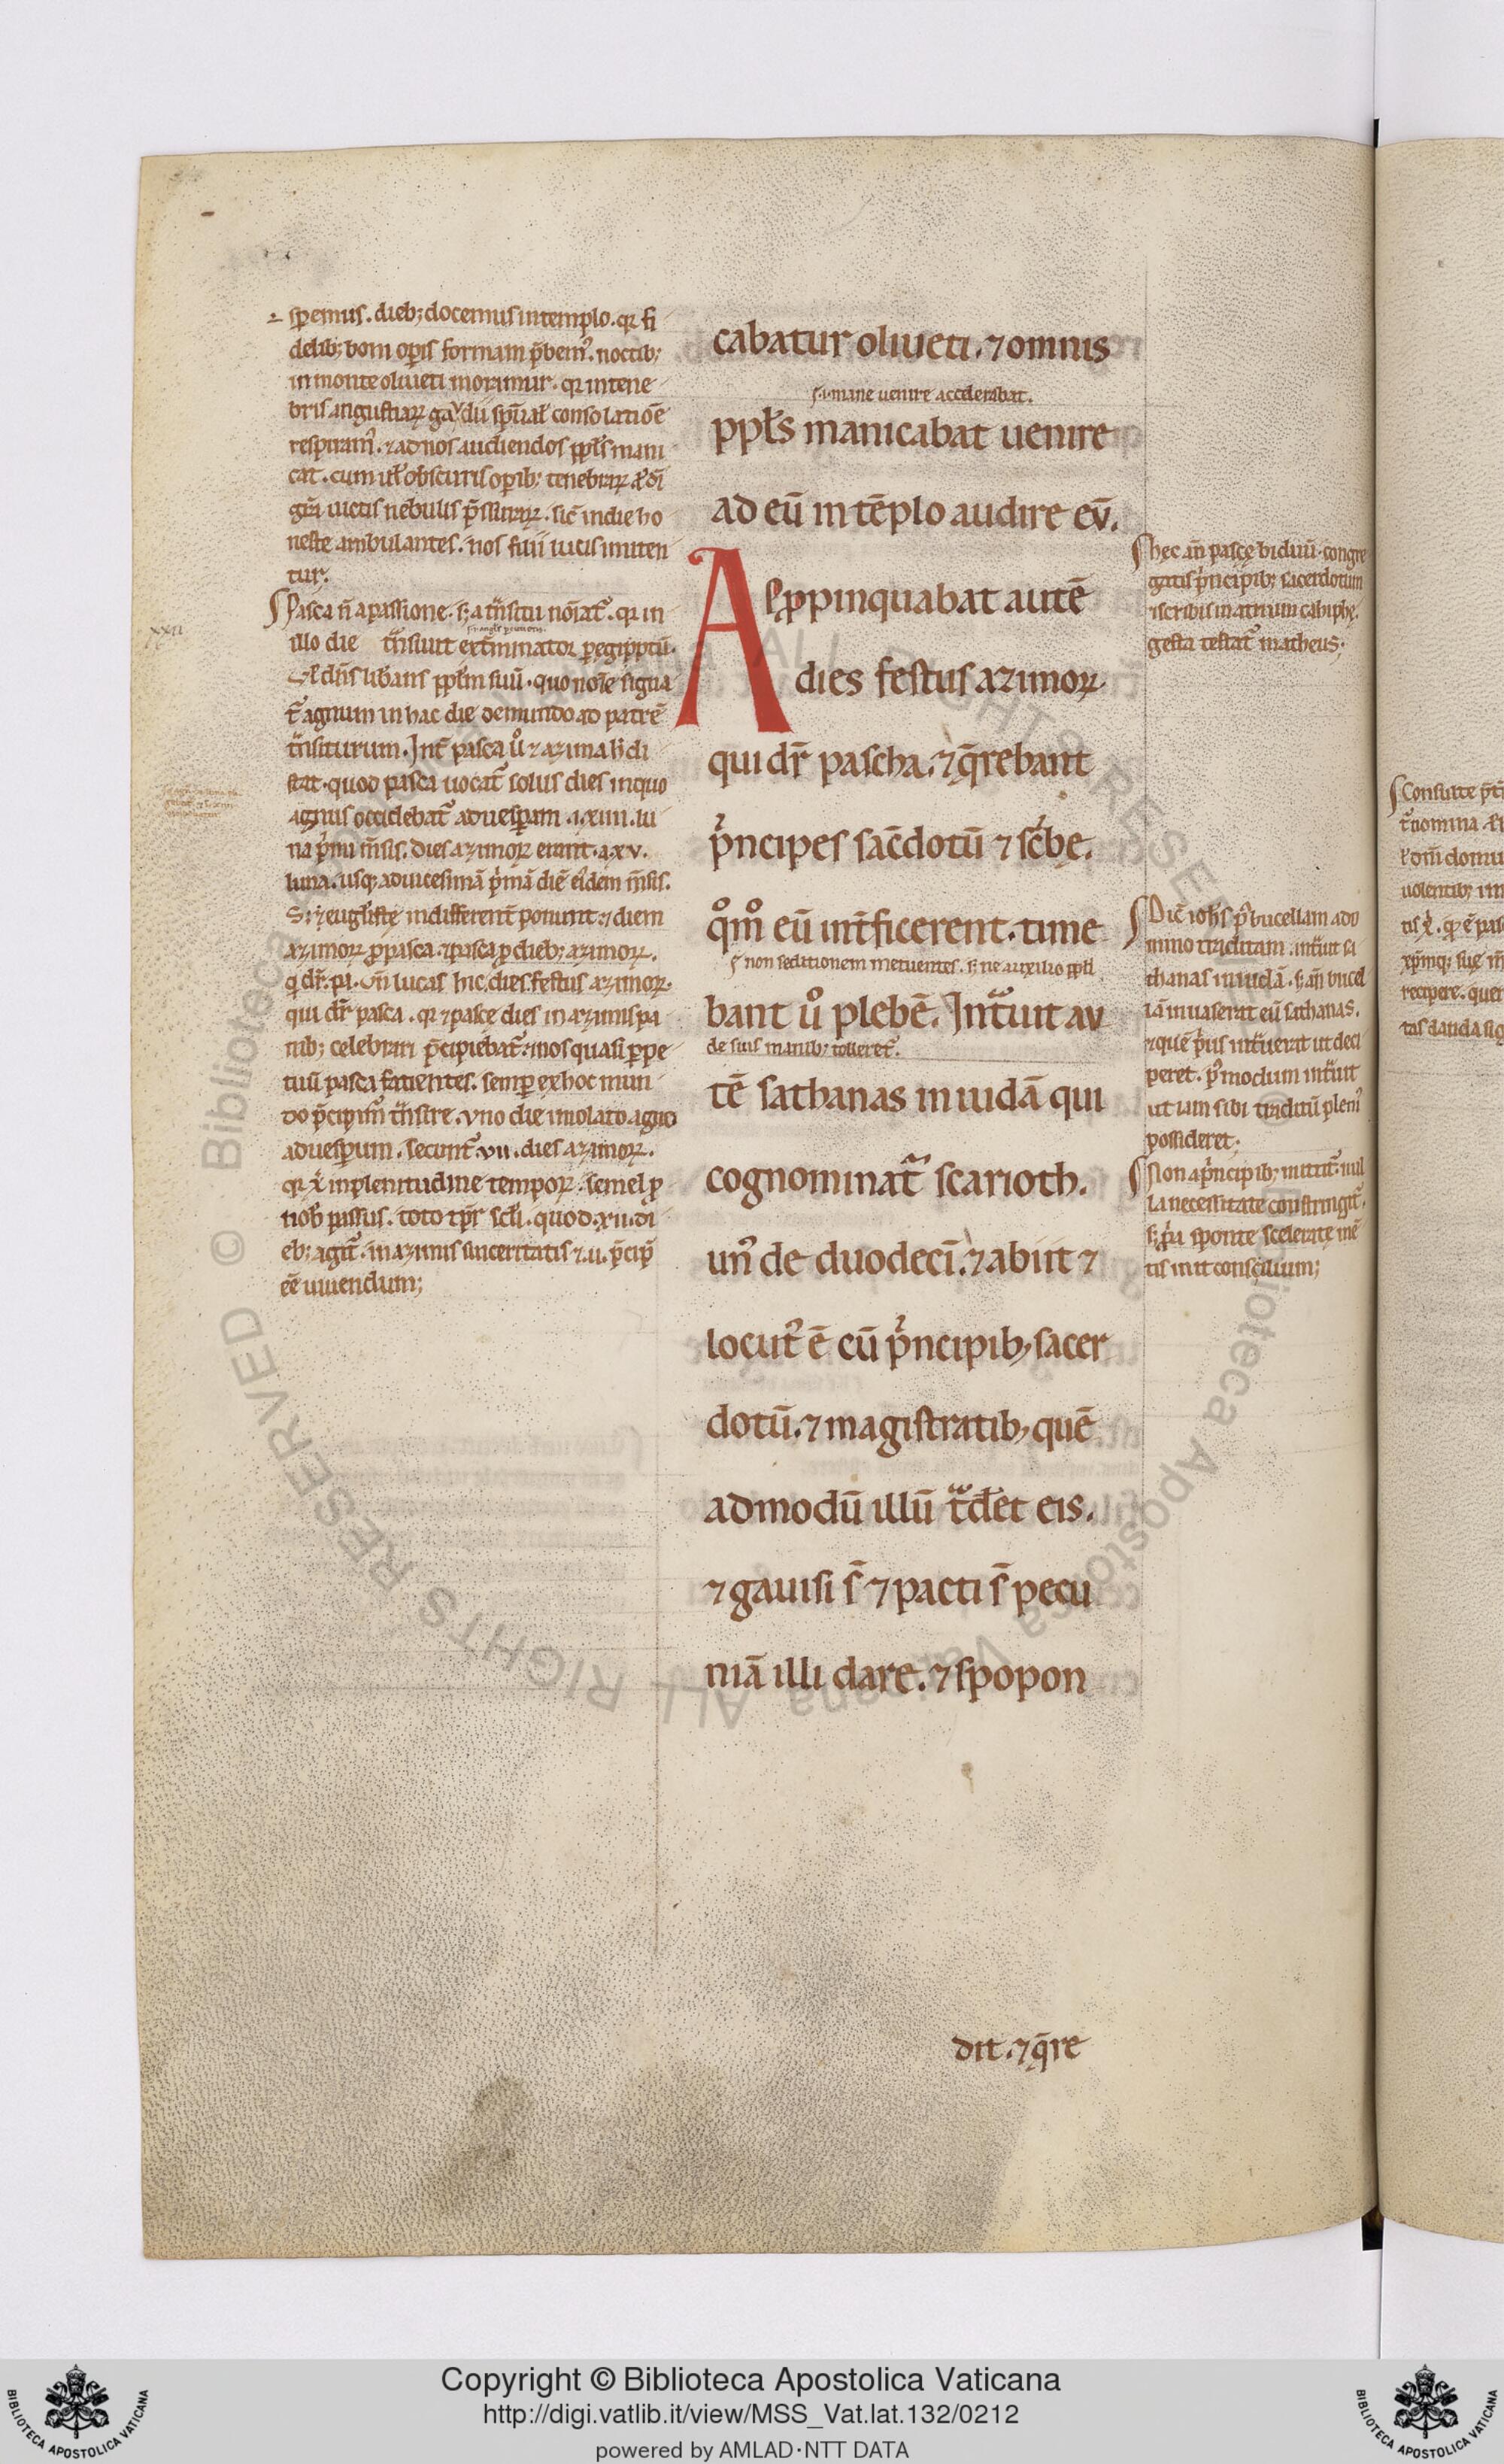 sp̄emus. dieb; docemus in templo. qꝛ fi
delib; boni oꝑis formam p̄bemꝰ. noctib;
in monte oliueti moramur. qꝛ in tene
bris angustiaꝝ gaudii sp̄ual̄ consolatiōe
respiramꝰ. ⁊ ad nos audiendos pp̄ls mani
cat. cum obscuris oꝑib; tenebraꝝ
gr̄a uictis nebulis p̄ssuraꝝ. sic̄ in die ho
neste ambulantes. nos filii lucis imiten
tur.
Pasca n̄ a passione. s; a t̄nsitu noīat̄. qꝛ in
illo die t̄nsiuit ext̄minator ꝑ egipptū.
ł dn̄s libans pp̄lm suū. quo nōīe signa
t̄ agnum in hac die de mundo ad patrē
t̄nsiturum. Int̄ pasca ů ⁊ azima h̄ di
stat. quod pasca uocat̄ solus dies in quo
agnus occidebat̄ ad uesꝑam .i. xiiii. lu
na p̄mi m̄sis. dies azimoꝝ erant. a xv.
luna. usq; ad uicesimā p̄mā diē eīdem m̄sis.
S; ⁊ eugl̄iste indifferent̄ ponunt. ⁊ diem
azimoꝝ ꝓ pasca. ⁊ pasca ꝓ dieb; azimoꝝ.
q̄ dr̄. pa. Vn̄ lucas hic. dies festus azimoꝝ.
qui dr̄ pasca. qꝛ ⁊ pasce dies in azimis pa
nib; celebrari p̄cipiebat̄. ⁊ nos quasi ꝑpe
tuū pasca facientes. semꝑ ex hoc mun
do p̄cipimꝰ t̄nsire. Vno die imolato agno
ad uesꝑum. secunt̄ .vii. dies azimoꝝ.
qꝛ x̄ in plenitudine tempoꝝ. semel ꝓ
nob̄ passus. toto tp̄r scl̄i. quod .vii. di
eb; agit̄. in azimis sinceritatis ⁊ .u. p̄cip̄
eē uiuendum;
xxii
cabatur oliueti. ⁊ omnis
.i. mane uenire accelerabat.
pp̄ls manicabat uenire
ad eū in tēplo audire eū.
Aꝓpinquabat autē
dies festus azimoꝝ.
qui dr̄ pascha. ⁊ q̄rebant
p̄ncipes sac̄dotū ⁊ sc̄be.
qͦmͦ eū int̄ficerent. time
non seditionem metuentes. s; ne auxilio ppl̄i
bant ů plebē. Int̄uit au
de suis manib; tolleret̄.
tē sathanas in iudā qui
cognominat̄ scarioth.
unꝰ de duodecī. ⁊ abiit ⁊
locutꝰ ē cū p̄ncipib; sacer
dotū. ⁊ magistratib; quē
admodū illū t̄det eis.
⁊ gauisi s̄ ⁊ pacti s̄ pecu
niā illi dare. ⁊ spopon
dit. ⁊ q̄re
hęc an̄ pascę biduū. congre
gatis p̄ncipib; sacerdotum
⁊ scribis in atrium caiphę.
gesta testat̄ matheus.
Dic̄ ioh̄s pꝰ bucellam a do
mino traditam. int̄uit sa
thanas in iudā. s; an̄ bucel
lā inuaserat eū sathanas.
⁊ quē p̄us int̄uerat ut deci
peret. pꝰmodum int̄uit
ut iam sibi traditū plenꝰ
possideret;
Non a p̄ncipib; inuitat̄. nul
la necessitate constringit̄.
s; p̄a sponte sceleratę mē
tis init consilium;
Copyright © Biblioteca Apostolica Vaticana
http://digi.vatlib.it/view/MSS_Vat.lat.132/0212
powered by AMLAD·NTT DATA